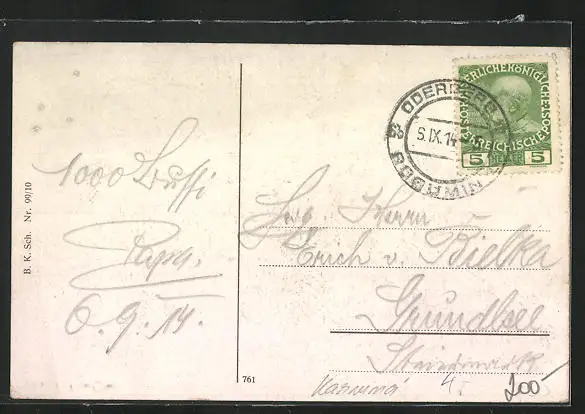 B. K. Sch. Nr. 99/10
1000 Bussi
Papa.
6.9.14.
761
ODERBERG
6.IX.14
BOGUMIN
KAISERLICHE KÖNIGLICHE
ÖSTERREICHISCHE POST
5 HELLER 5
Herrn
Erich v. Bielka
Grundlsee
Steiermark
4.
200-